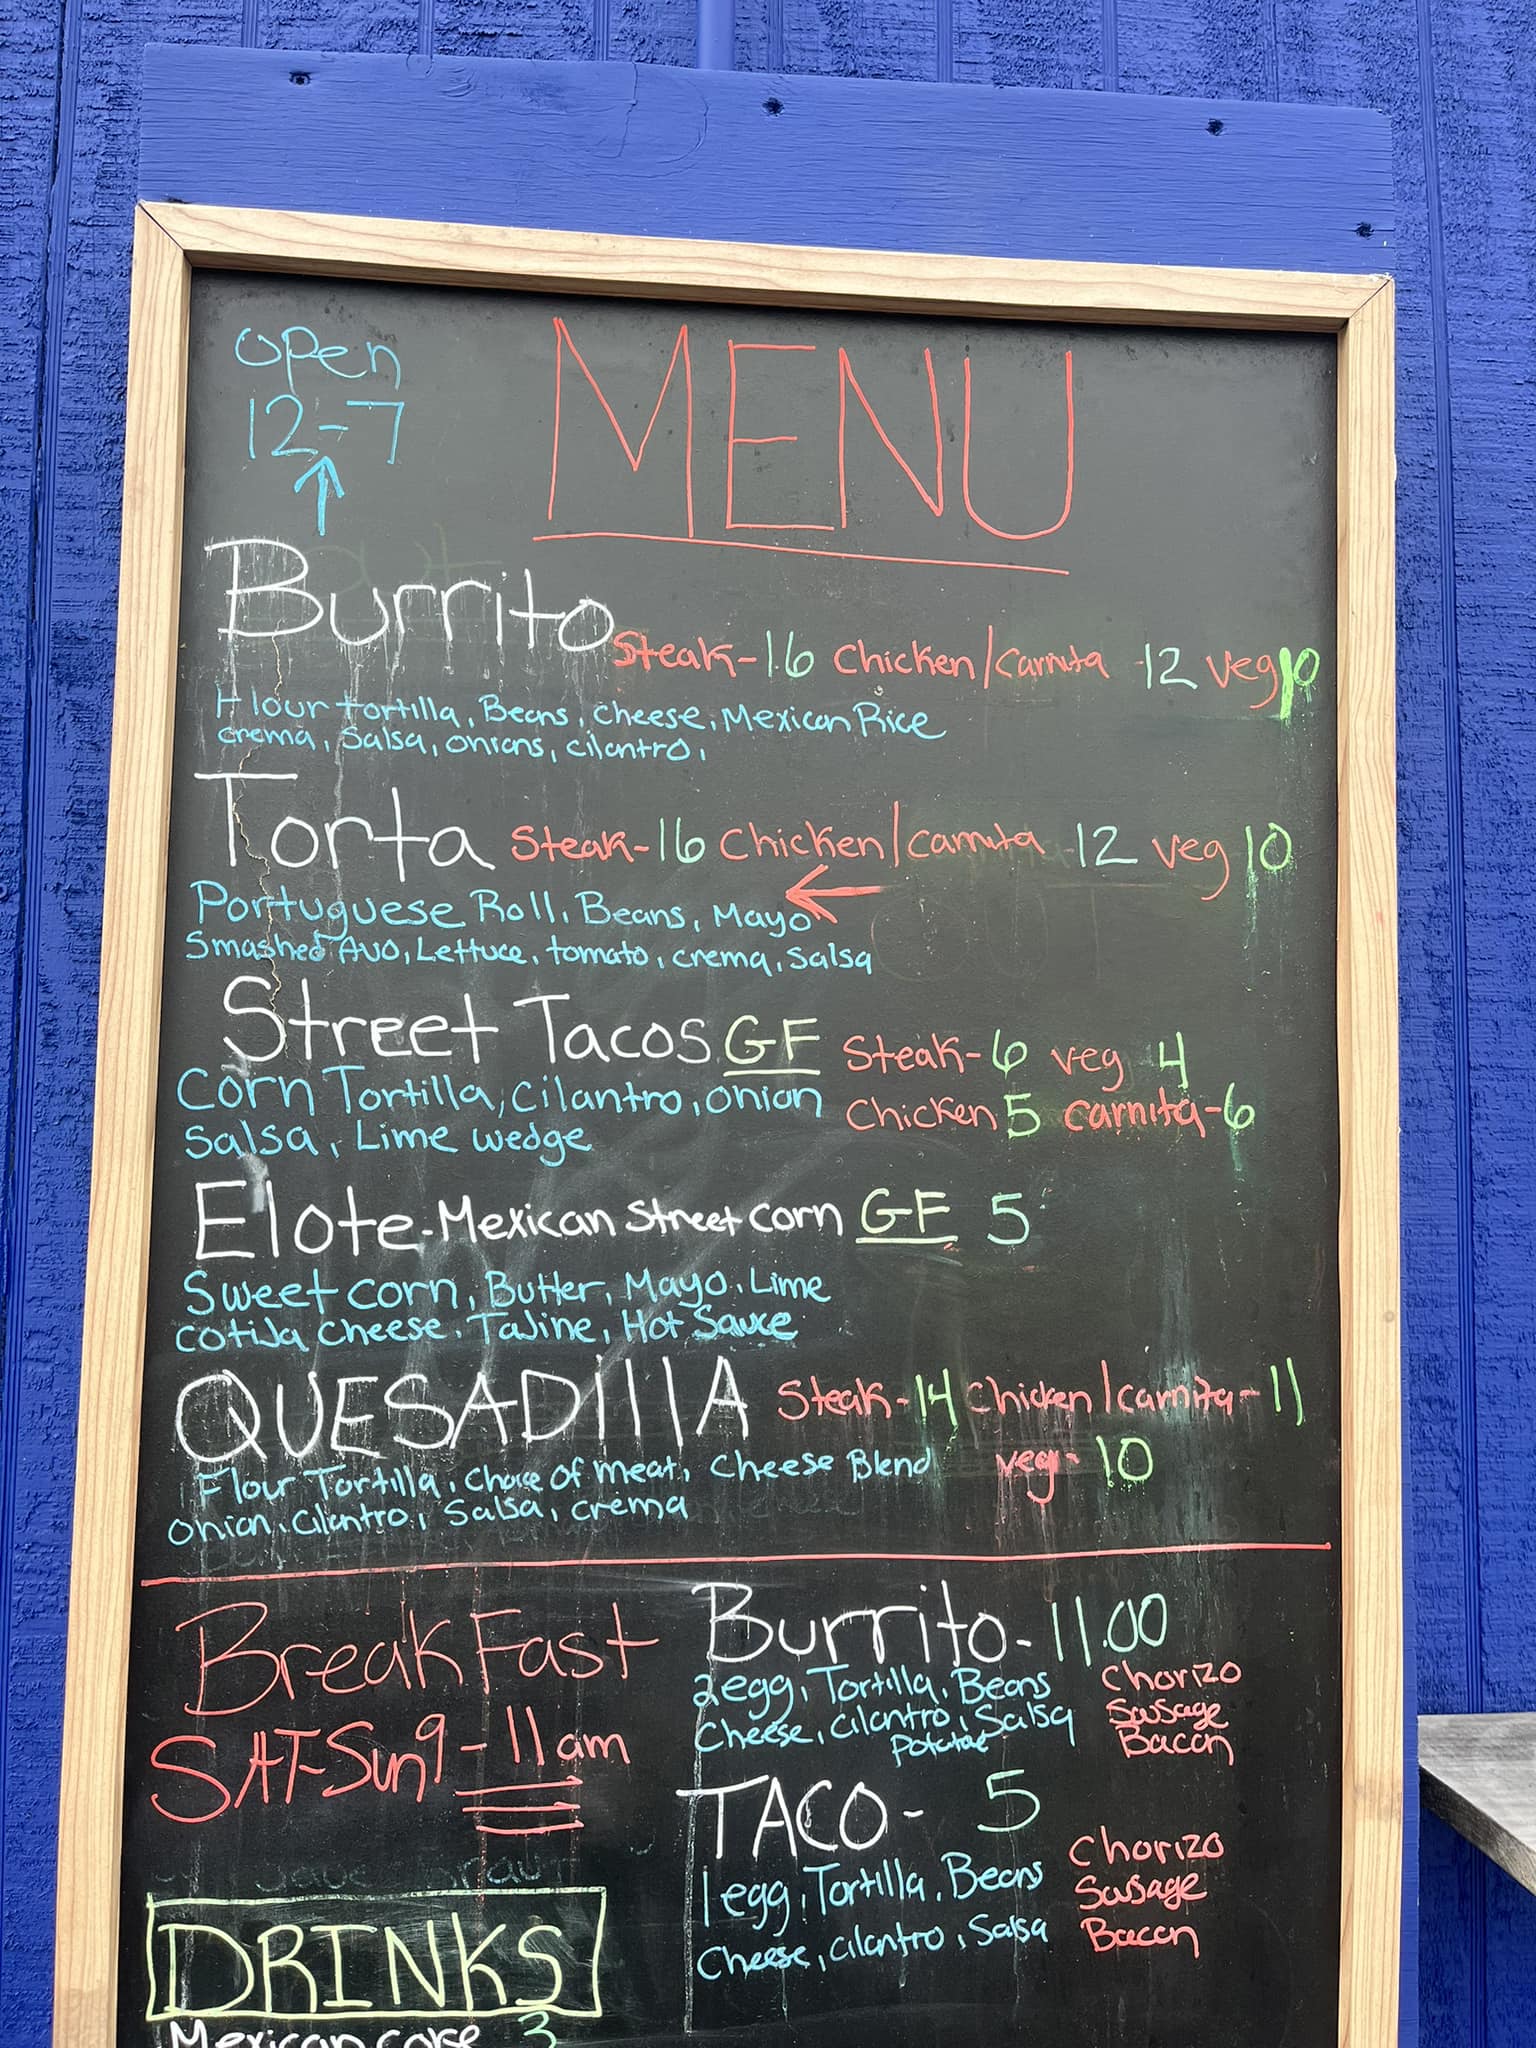 open
12-7
MENU
Burrito Steak-16 Chicken/Carnita -12 Veg 10
Flour tortilla, Beans, Cheese, Mexican Rice
crema, Salsa, onions, cilantro,
Torta Steak-16 Chicken/carnita -12 Veg 10
Portuguese Roll, Beans, Mayo
Smashed AVO, Lettuce, tomato, crema, Salsa
Street Tacos GF Steak-6 veg 4
Corn Tortilla, Cilantro, onion Chicken 5 Carnita-6
Salsa, Lime wedge
Elote-Mexican Street corn GF 5
Sweet corn, Butter, Mayo, Lime
cotija Cheese, Tajine, Hot Sauce
QUESADillA Steak-14 Chicken/carnita-11
Flour Tortilla, Choice of meat, Cheese Blend veg-10
onion, Cilantro, Salsa, crema
BreakFast
SAT-Sun 9-11am
Burrito-11.00
2egg, Tortilla, Beans Chorizo
Cheese, Cilantro, Salsa Sausage
Potatoe Bacon
TACO-5
1egg, Tortilla, Beans Chorizo
Cheese, Cilantro, Salsa Sausage
Bacon
DRINKS
Mexican coke 3